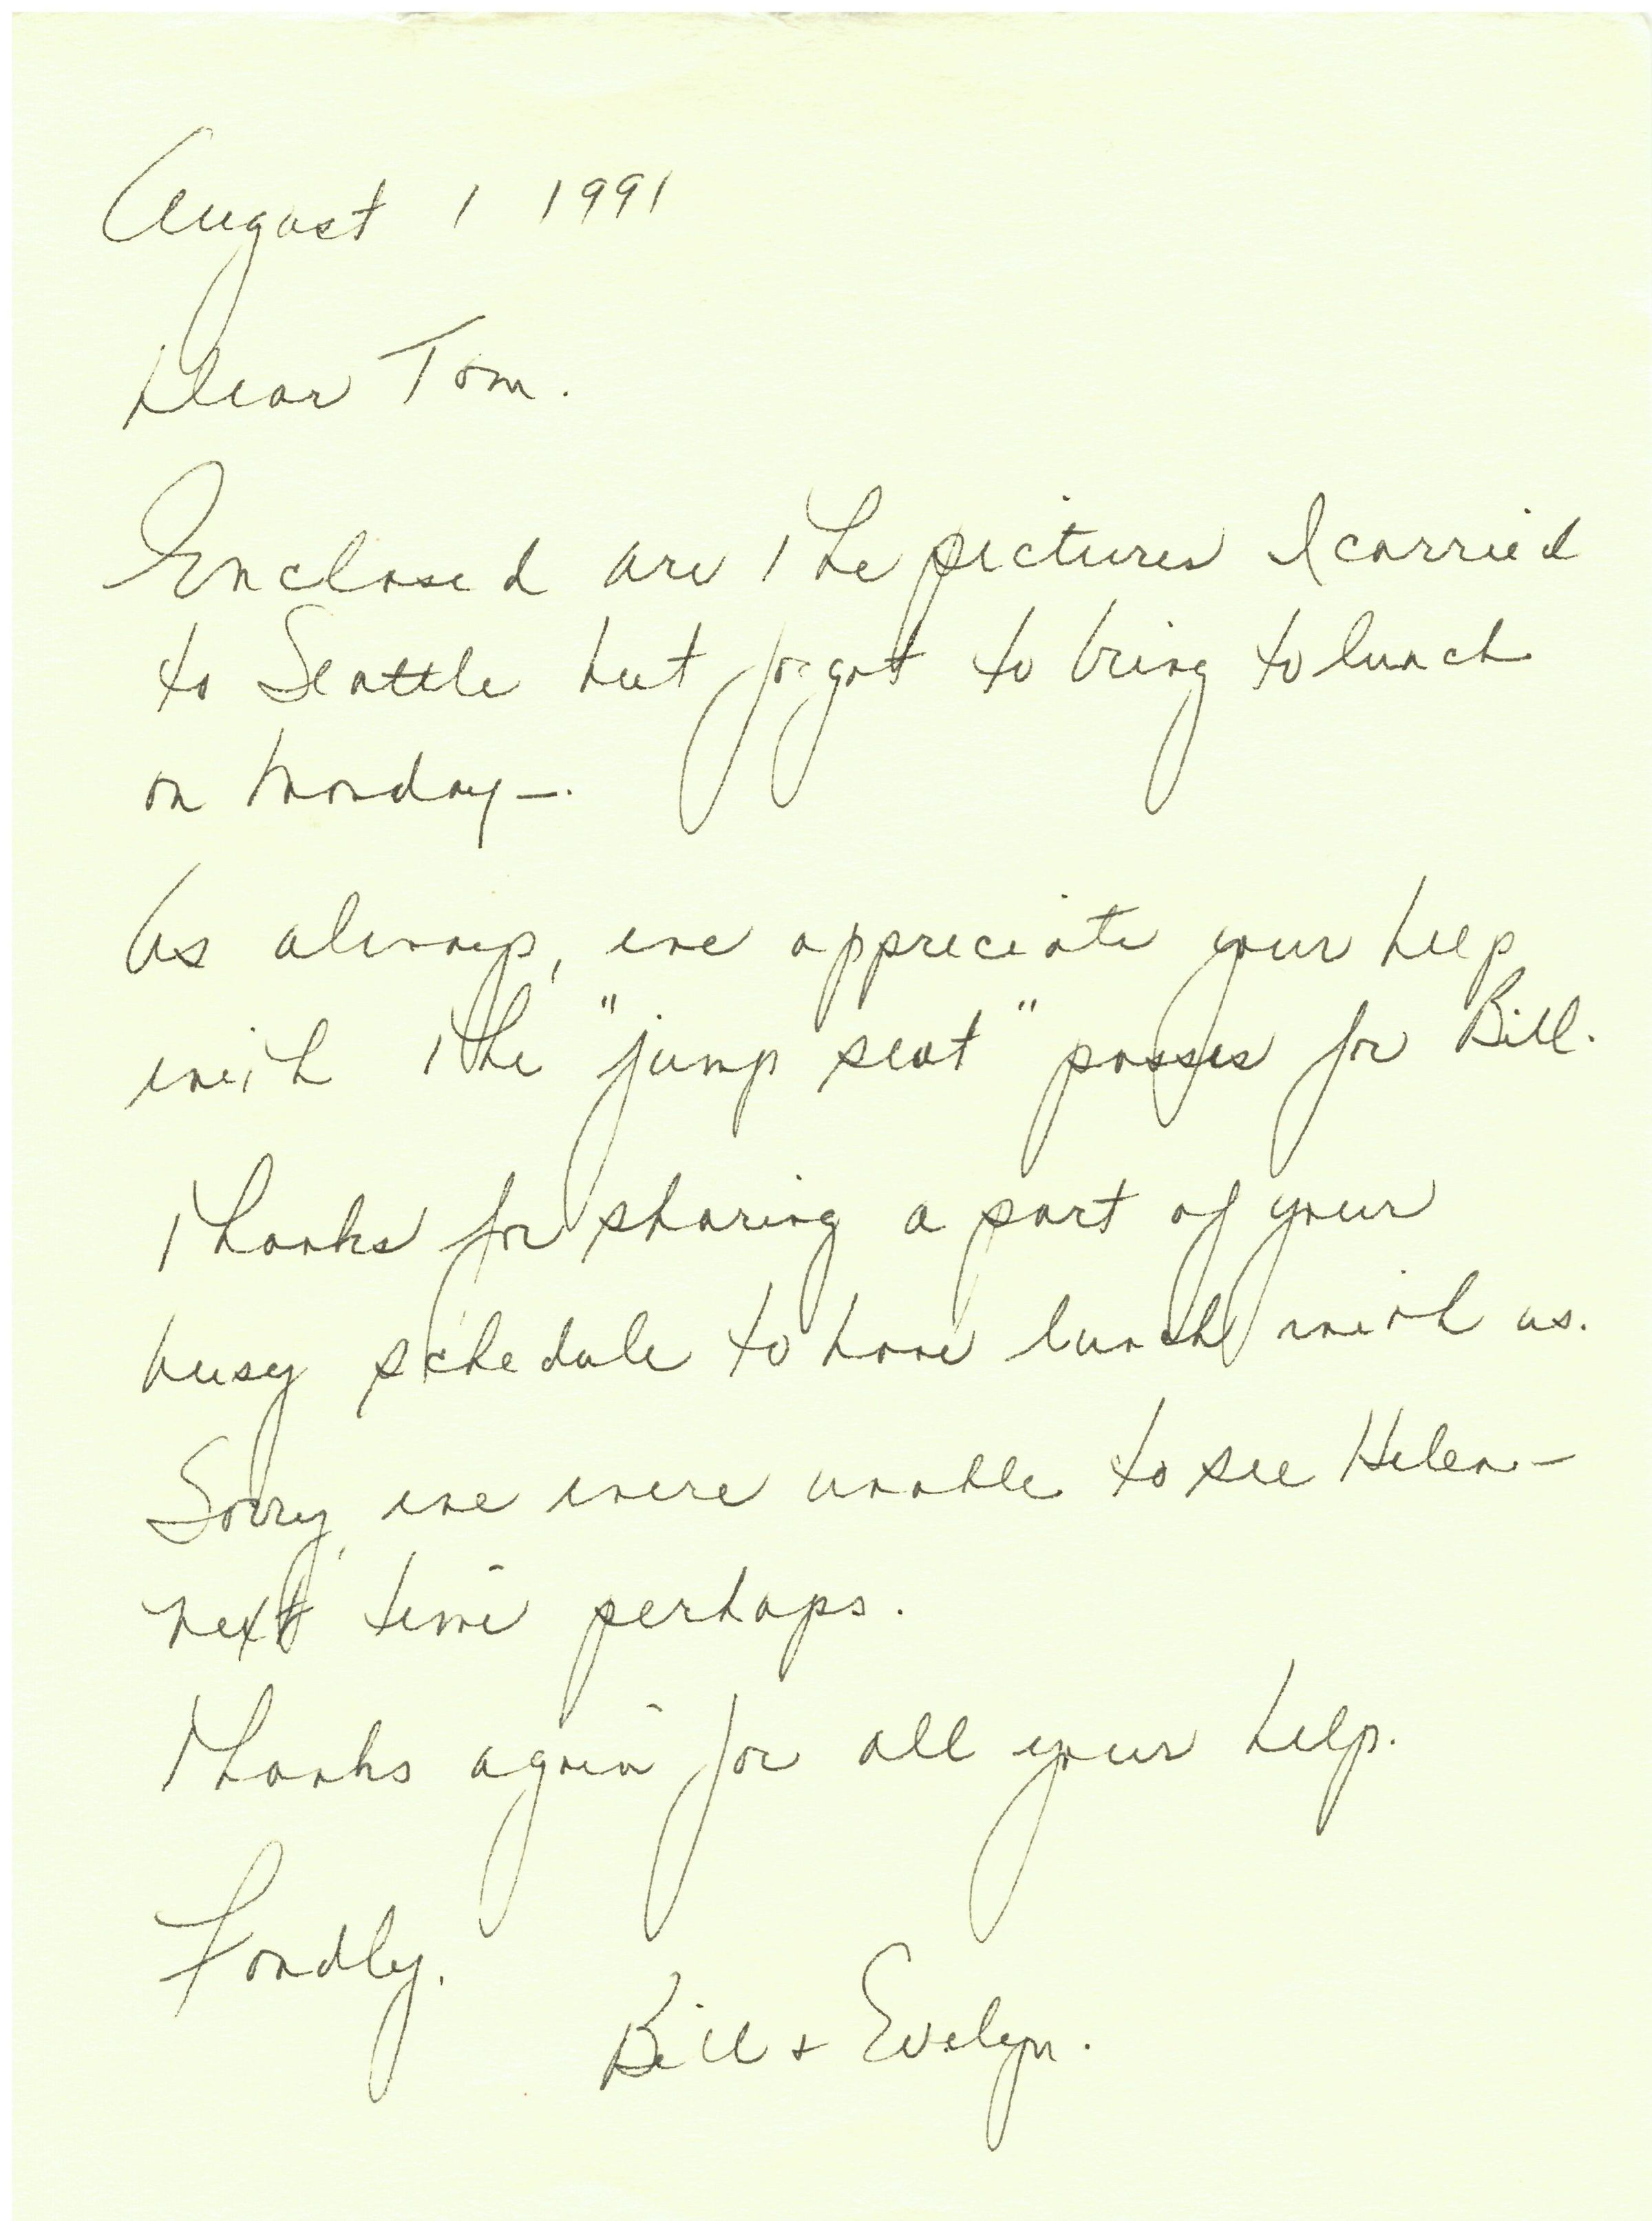 August 1 1991
Dear Tom.
Enclosed are the pictures I carried
to Seattle but forgot to bring to lunch
on Monday—.
As always, we appreciate your help
with the "jump seat" passes for Bill.
Thanks for sharing a part of your
busy schedule to have lunch with us.
Sorry, we were unable to see Helen—
next time perhaps.
Thanks again for all your help.
Fondly,
Bill + Evelyn.